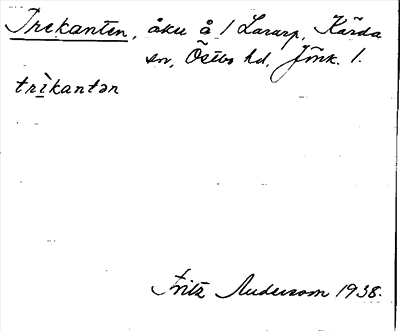 Trekanten, åker å 1 Lararp, Kärda
sn, Östbo hd, Jönk. l.
trìkantən
Fritz Andersson 1938.